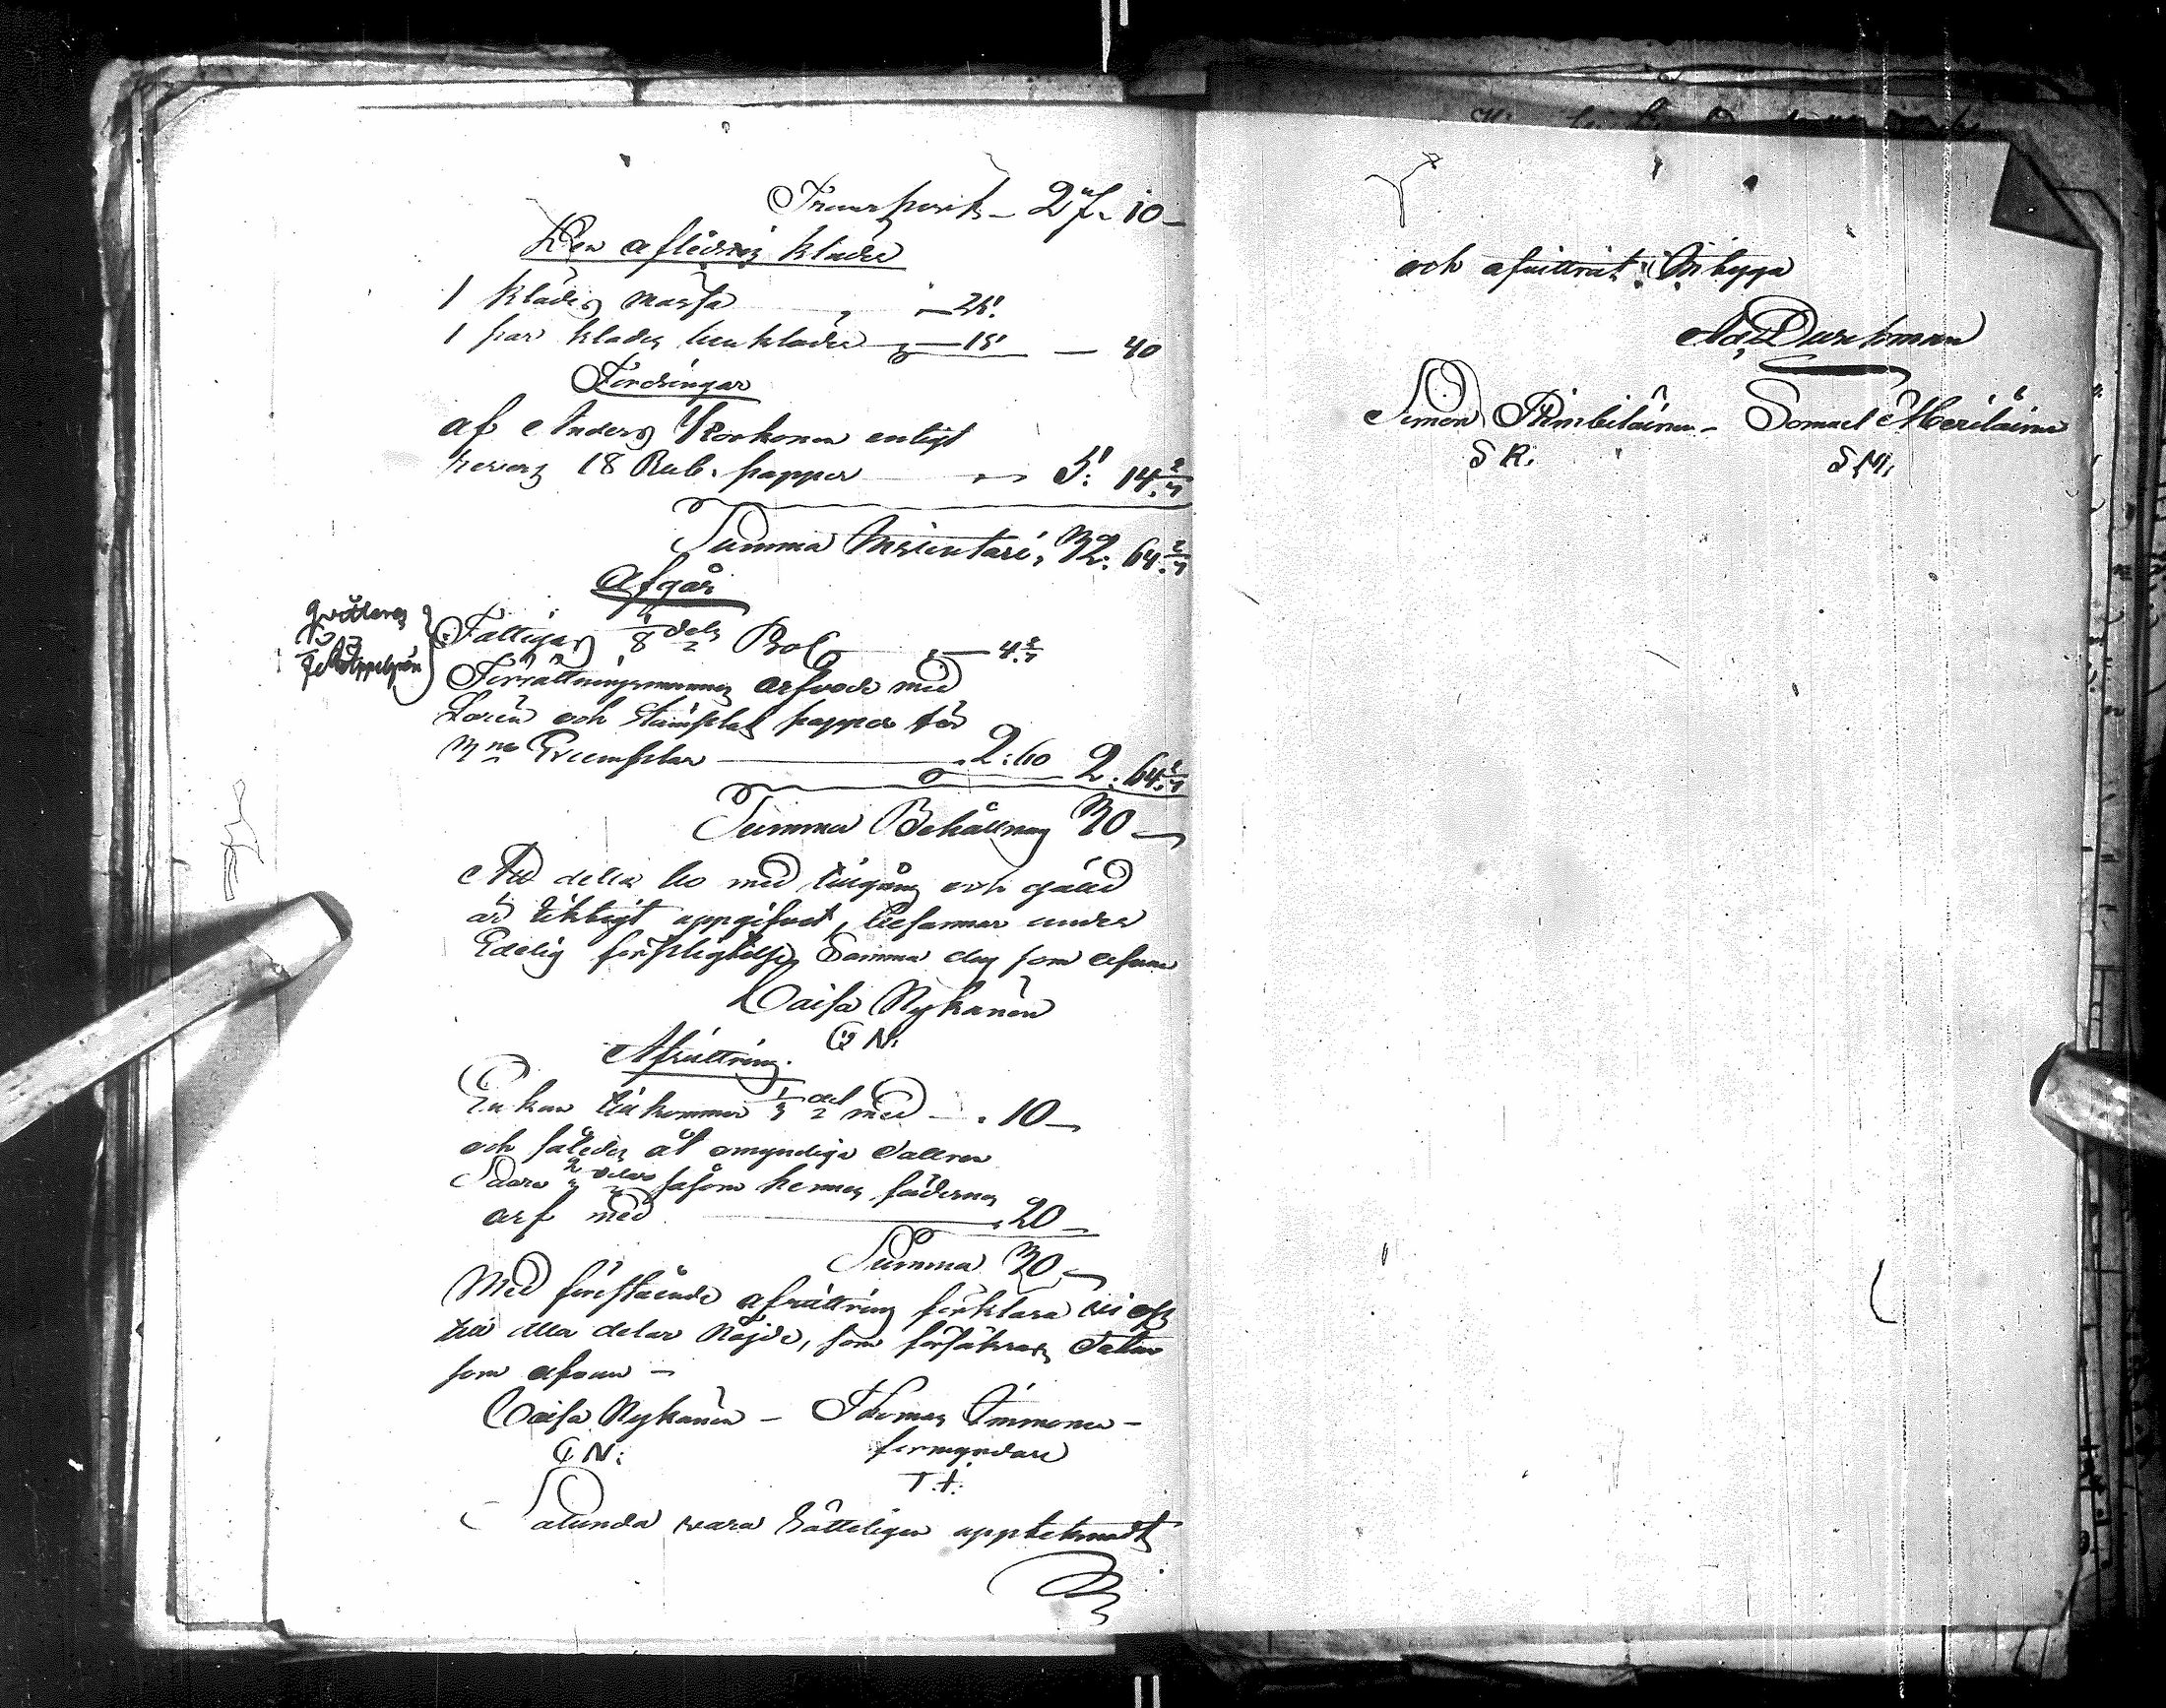 Transport - 27. 10 -
Den aflednes kläder
1 kläders tröja „ - 25.
1 par kläder benkläder „ - 15 - 40
Fordringar
af Anders Korhonen enligt
revers 18 Rub. papper - 5: 14 2/7
Summa Inventarii, 32: 64 2/7
Afgår
Fattigas 1/8 dels Proc. „ - 4 2/7
Förrättningsmannens arfvode med
Lösen och Stämplat papper för
3ne Exemplar - 2:60 2: 64 2/7
Summa Behållning 30 -
Att detta bo med tillgång och gäld
är riktigt uppgifvet, bejannar under
Edelig förpligtelse, Samma dag som ofvan
Caisa Nykänen
C N:
Afvittring.
Enkan tillkommer 1/3 del med - „ 10 -
och således åt omyndiga dattren
Saara 2/3 delar såsom hennes fäderne
arf med „ 20 -
Summa 30 -
Med förestående afvittring förklara vi oss
till alla delar nöjde, som försäkras Datum
som ofvan -
Caisa Nykänen - Thomas Immonen -
C N: förmyndare
T. I.
Sålunda vara rätteligen upptecknadt
och afvittrat; Betyga
Ad: Durchman
Simon Rimbiläinen - Samuel Meriläinen
S R. S M.